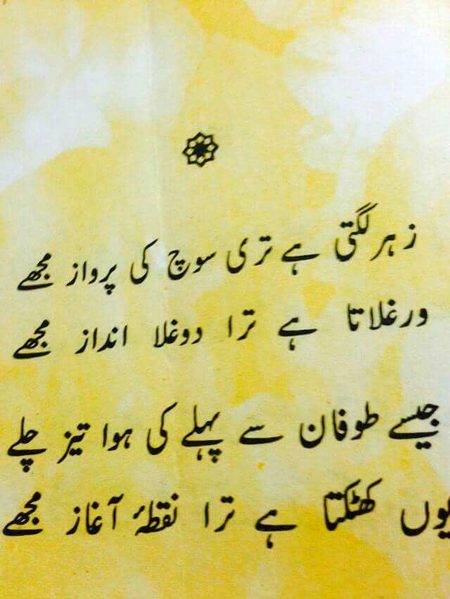 زہر لگتی ہے تری سوچ کی پرواز مجھے
ورغلاتا ہے ترا دوغلا انداز مجھے
جیسے طوفان سے پہلے کی ہوا تیز چلے
یوں کھٹکتا ہے ترا نقطۂ آغاز مجھے